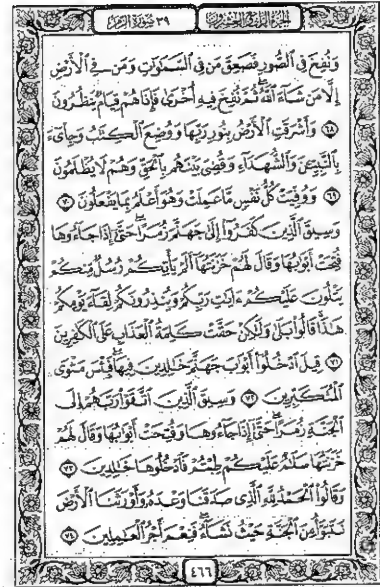 الجزء الرابع والعشرون ٣٩ سورة الزمر
وَنُفِخَ فِي الصُّورِ فَصَعِقَ مَن فِي السَّمَٰوَٰتِ وَمَن فِي الْأَرْضِ
إِلَّا مَن شَاءَ اللَّهُ ثُمَّ نُفِخَ فِيهِ أُخْرَىٰ فَإِذَا هُمْ قِيَامٌ يَنظُرُونَ
٦٨ وَأَشْرَقَتِ الْأَرْضُ بِنُورِ رَبِّهَا وَوُضِعَ الْكِتَٰبُ وَجِا۟يٓءَ
بِالنَّبِيِّـۧنَ وَالشُّهَدَاءِ وَقُضِيَ بَيْنَهُم بِالْحَقِّ وَهُمْ لَا يُظْلَمُونَ
٦٩ وَوُفِّيَتْ كُلُّ نَفْسٍ مَّا عَمِلَتْ وَهُوَ أَعْلَمُ بِمَا يَفْعَلُونَ ٧٠
وَسِيقَ الَّذِينَ كَفَرُوا إِلَىٰ جَهَنَّمَ زُمَرًا حَتَّىٰ إِذَا جَاءُوهَا
فُتِحَتْ أَبْوَٰبُهَا وَقَالَ لَهُمْ خَزَنَتُهَا أَلَمْ يَأْتِكُمْ رُسُلٌ مِّنكُمْ
يَتْلُونَ عَلَيْكُمْ ءَايَٰتِ رَبِّكُمْ وَيُنذِرُونَكُمْ لِقَاءَ يَوْمِكُمْ
هَٰذَا قَالُوا بَلَىٰ وَلَٰكِنْ حَقَّتْ كَلِمَةُ الْعَذَابِ عَلَى الْكَٰفِرِينَ
٧١ قِيلَ ادْخُلُوا أَبْوَٰبَ جَهَنَّمَ خَٰلِدِينَ فِيهَا فَبِئْسَ مَثْوَى
الْمُتَكَبِّرِينَ ٧٢ وَسِيقَ الَّذِينَ اتَّقَوْا رَبَّهُمْ إِلَى
الْجَنَّةِ زُمَرًا حَتَّىٰ إِذَا جَاءُوهَا وَفُتِحَتْ أَبْوَٰبُهَا وَقَالَ لَهُمْ
خَزَنَتُهَا سَلَٰمٌ عَلَيْكُمْ طِبْتُمْ فَادْخُلُوهَا خَٰلِدِينَ ٧٣
وَقَالُوا الْحَمْدُ لِلَّهِ الَّذِي صَدَقَنَا وَعْدَهُ وَأَوْرَثَنَا الْأَرْضَ
نَتَبَوَّأُ مِنَ الْجَنَّةِ حَيْثُ نَشَاءُ فَنِعْمَ أَجْرُ الْعَٰمِلِينَ ٧٤
٤٦٦